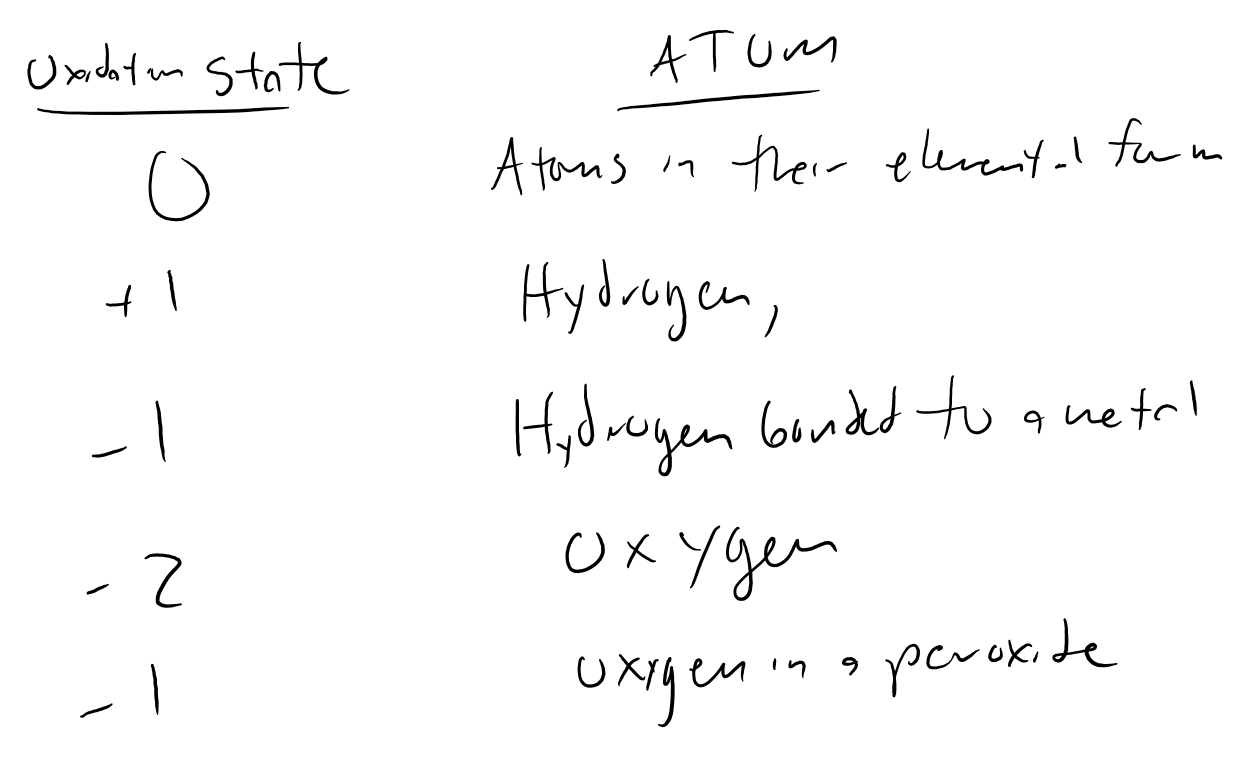 Oxidation State ATOM
0 Atoms in their elemental form
+1 Hydrogen,
-1 Hydrogen bonded to a metal
-2 Oxygen
-1 Oxygen in a peroxide